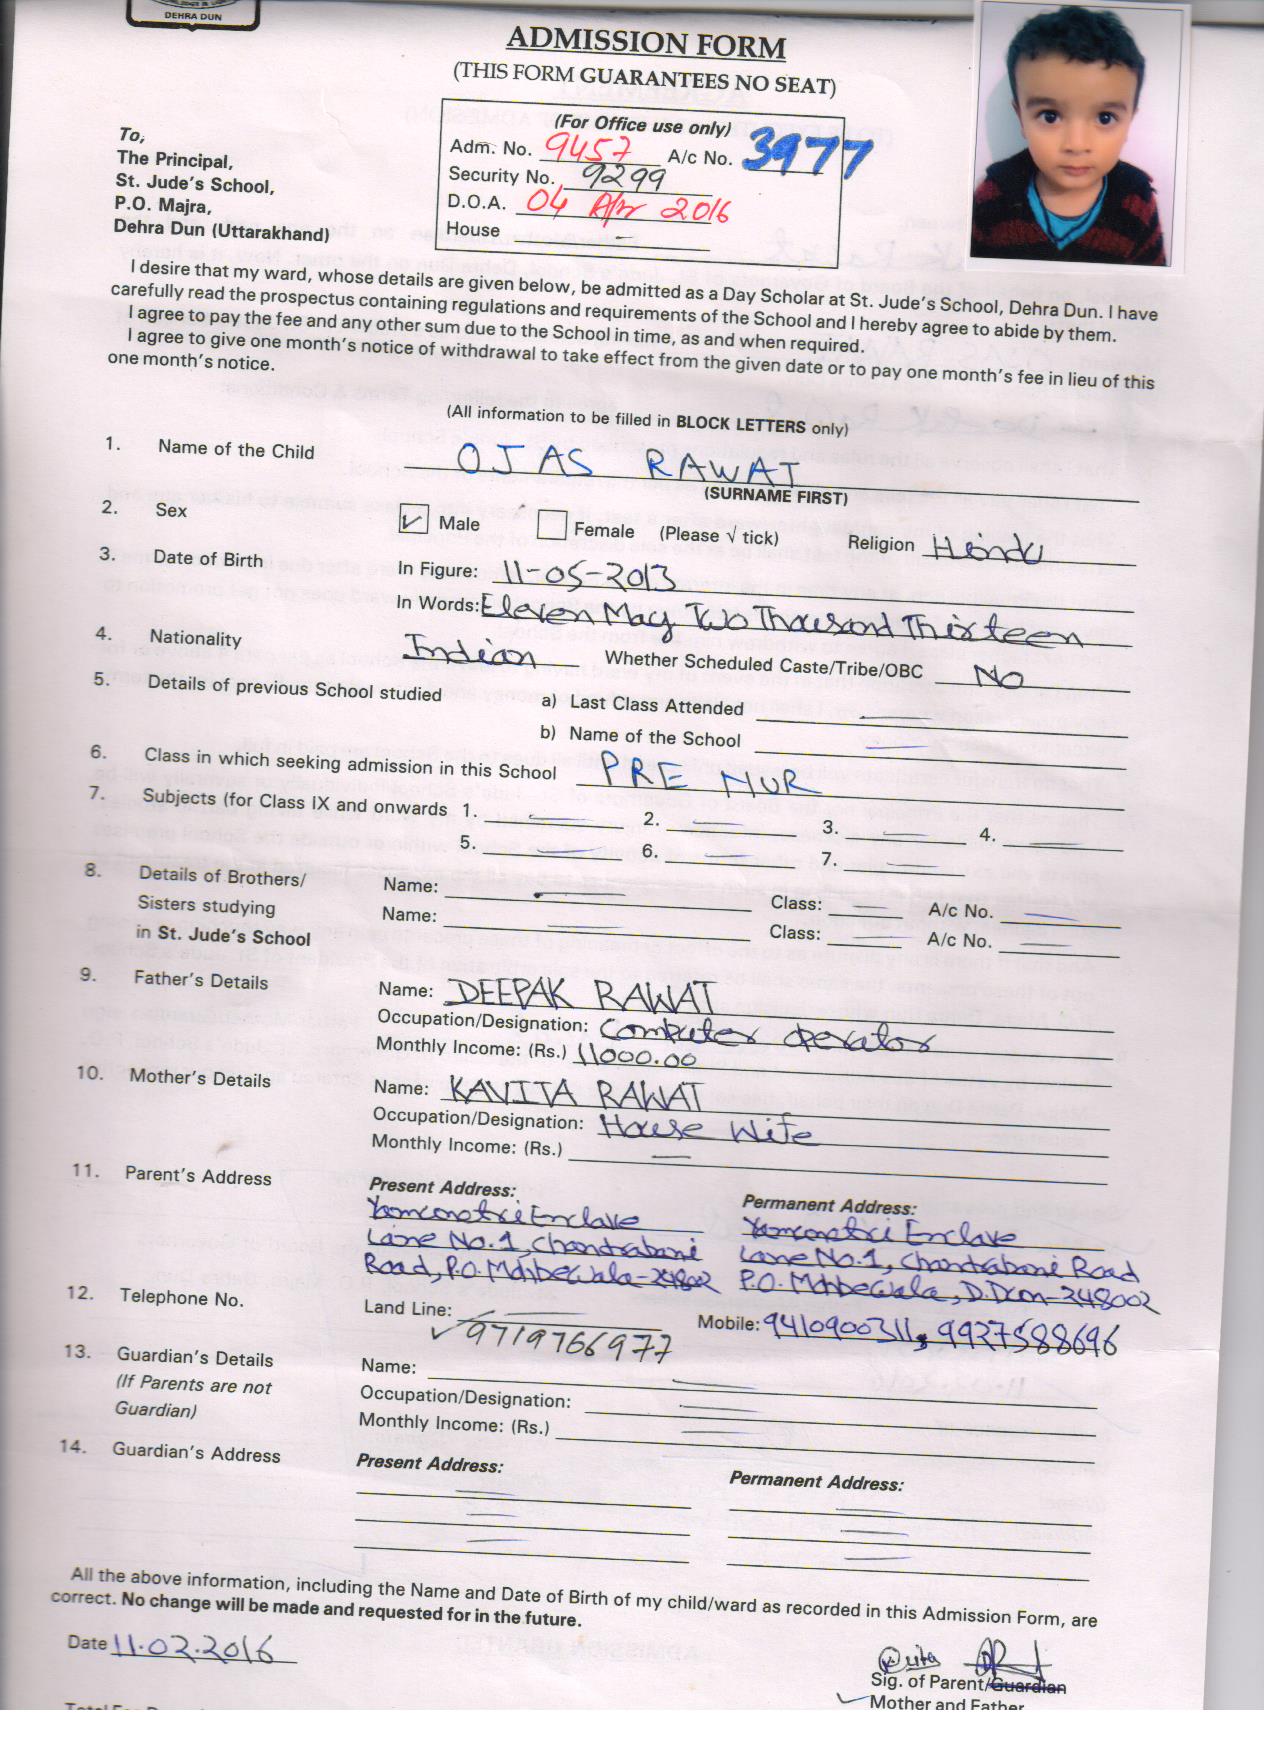 DEHRA DUN
ADMISSION FORM
(THIS FORM GUARANTEES NO SEAT)
(For Office use only)
Adm. No. 9457 A/c No. 3977
Security No. 9299
D.O.A. 04 Apr 2016
House -
To,
The Principal,
St. Jude's School,
P.O. Majra,
Dehra Dun (Uttarakhand)
I desire that my ward, whose details are given below, be admitted as a Day Scholar at St. Jude's School, Dehra Dun. I have
carefully read the prospectus containing regulations and requirements of the School and I hereby agree to abide by them.
I agree to pay the fee and any other sum due to the School in time, as and when required.
I agree to give one month's notice of withdrawal to take effect from the given date or to pay one month's fee in lieu of this
one month's notice.
(All information to be filled in BLOCK LETTERS only)
1. Name of the Child OJAS RAWAT
(SURNAME FIRST)
2. Sex ✓ Male Female (Please √ tick) Religion Hindu
3. Date of Birth In Figure: 11-05-2013
In Words: Eleven May Two Thousand Thirteen
4. Nationality Indian Whether Scheduled Caste/Tribe/OBC No
5. Details of previous School studied a) Last Class Attended —
b) Name of the School —
6. Class in which seeking admission in this School PRE NUR
7. Subjects (for Class IX and onwards 1. — 2. — 3. — 4. —
5. — 6. — 7. —
8. Details of Brothers/ Name: — Class: — A/c No. —
Sisters studying Name: — Class: — A/c No. —
in St. Jude's School
9. Father's Details Name: DEEPAK RAWAT
Occupation/Designation: Computer operator
Monthly Income: (Rs.) 11000.00
10. Mother's Details Name: KAVITA RAWAT
Occupation/Designation: House Wife
Monthly Income: (Rs.) —
11. Parent's Address Present Address: Permanent Address:
Yamonotri Enclave Yamonotri Enclave
Lane No.1, Chandrabani Lane No.1, Chandrabani Road
Road, P.O. Mohbewala-248002 P.O. Mohbewala, D.Dun-248002
12. Telephone No. Land Line: — Mobile: 9410900311, 9927588696
✓ 9719766977
13. Guardian's Details Name: —
(If Parents are not Occupation/Designation: —
Guardian) Monthly Income: (Rs.) —
14. Guardian's Address Present Address: Permanent Address:
— —
— —
— —
All the above information, including the Name and Date of Birth of my child/ward as recorded in this Admission Form, are
correct. No change will be made and requested for in the future.
Date 11.02.2016
Sig. of Parent/Guardian
✓ Mother and Father